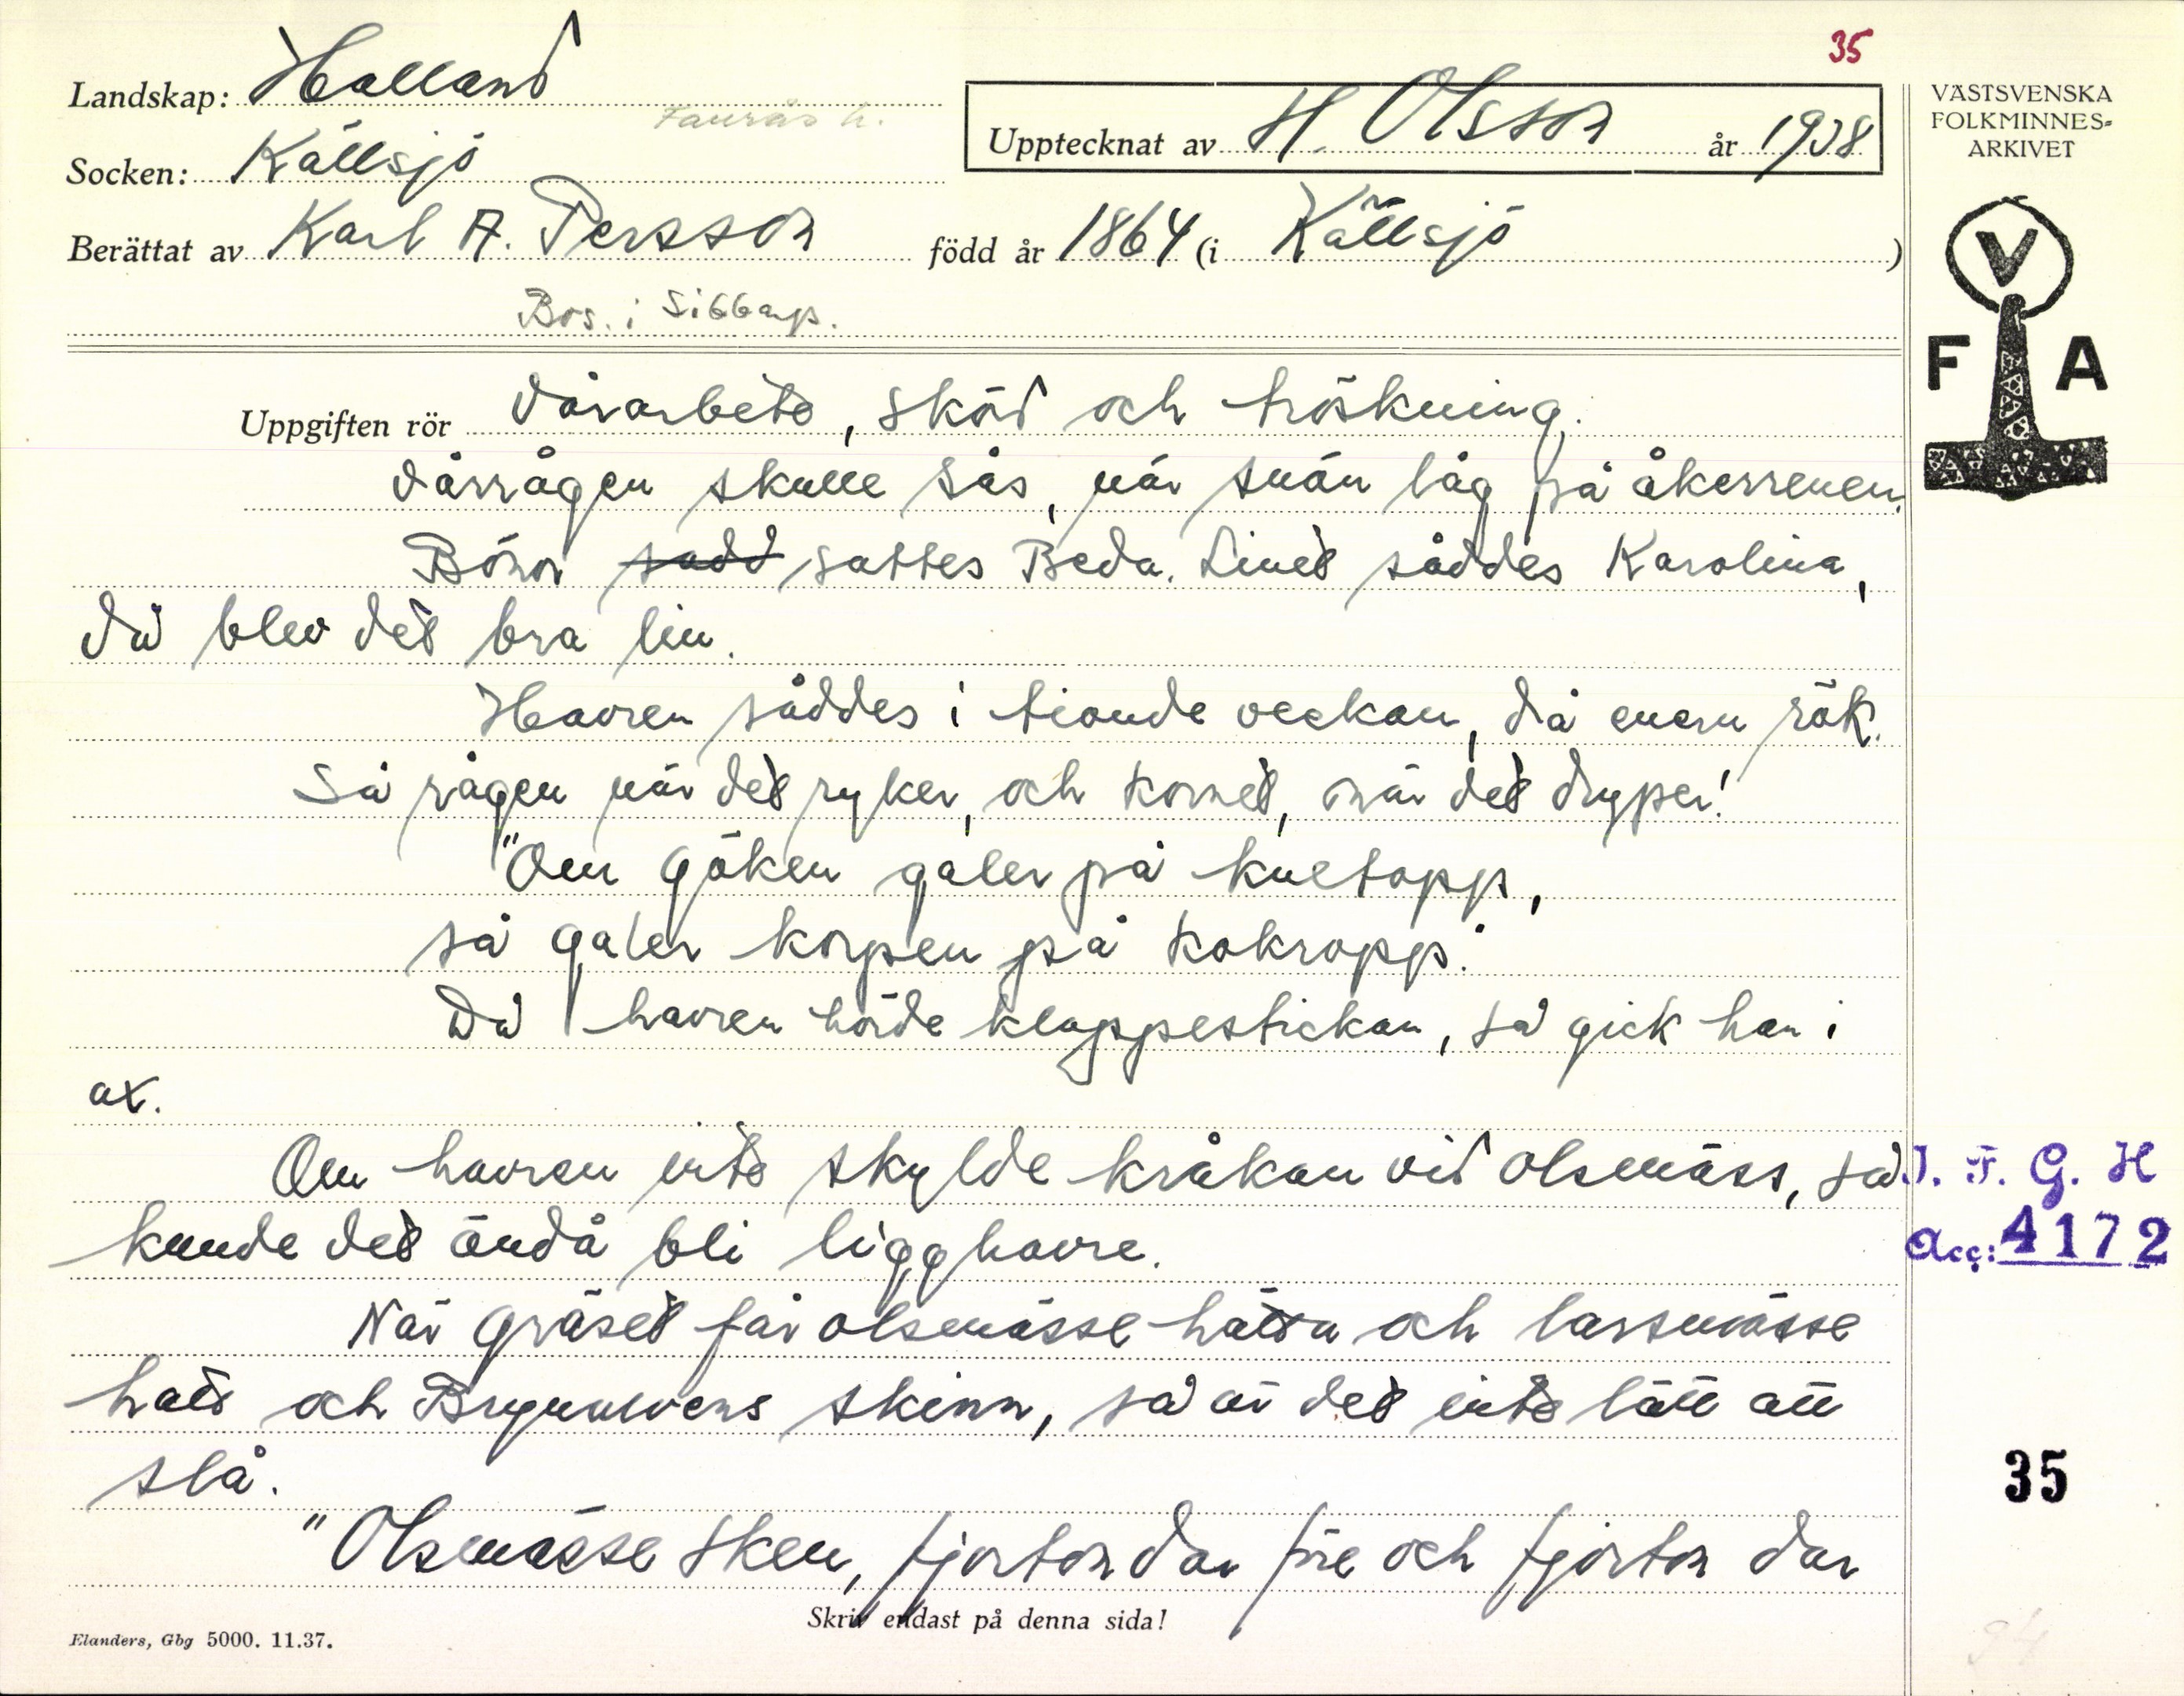 35
Landskap: Halland
Faurås h.
Socken: Källsjö
Upptecknat av H. Olsson år 1938
Berättat av Karl A. Persson född år 1864 (i Källsjö)
Bos. i Sibbarp.
VÄSTSVENSKA
FOLKMINNES-
ARKIVET
V
F A
Uppgiften rör vårarbete, skörd och tröskning.
Vårrågen skulle sås, när snön låg på åkerrenen.
Bönor sadd sattes Beda. Linet såddes Karolina,
då blev det bra lin.
Havren såddes i tionde veckan, då enern rök.
Så rågen när det ryker, och kornet, när det dryper!
"Om göken galer på kuetopp,
så galer korpen på kokropp."
Då havren hörde klappestickan, så gick han i
ax.
Om havren inte skylde kråkan vid olsmäss, så
kunde det ändå bli ligghavre.
När gräset får olsmässe hätta och larsmässe
hatt och Brynulvens skinn, så är det inte lätt att
slå.
"Olsmässe sken, fjorton dar före och fjorton dar
I. F. G. H
Acc: 4172
35
Skriv endast på denna sida!
Elanders, Gbg 5000. 11.37.
94